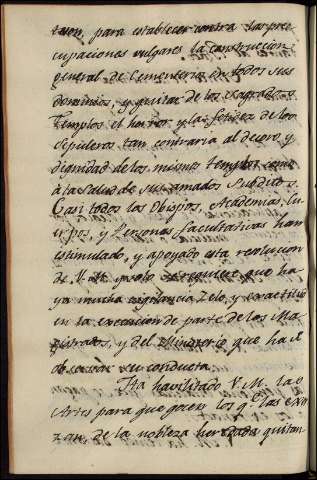 taron, para establecer contra las preo
cupaciones vulgares la construccion
general de Cementerios en todos sus
dominios, y quitar de los sagrados
Templos el horror y la fetidez de los
sepulcros tan contraria al decoro y
dignidad de los mismos templos como
à la salud de sus amados Subditos.
Casi todos los Obispos, Academias, Cu
erpos, y Personas facultativas han
estimulado, y apoyado esta resolucion
de V.M. y solo se requiere que ha
ya mucha vigilancia Zelo, y exactitud
en la execucion de parte de los Ma
gistrados, y del Ministerio que ha de
observar su conducta.
Ha havilitado V. M. las
Artes para que gocen los q.e las exer
zan, de la nobleza heredada quitan